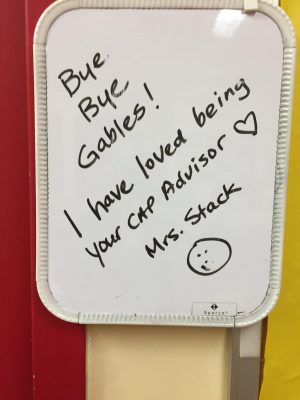 Bye
Bye
Gables!
I have loved being
your CAP Advisor ♡
Mrs. Stack
Sparco